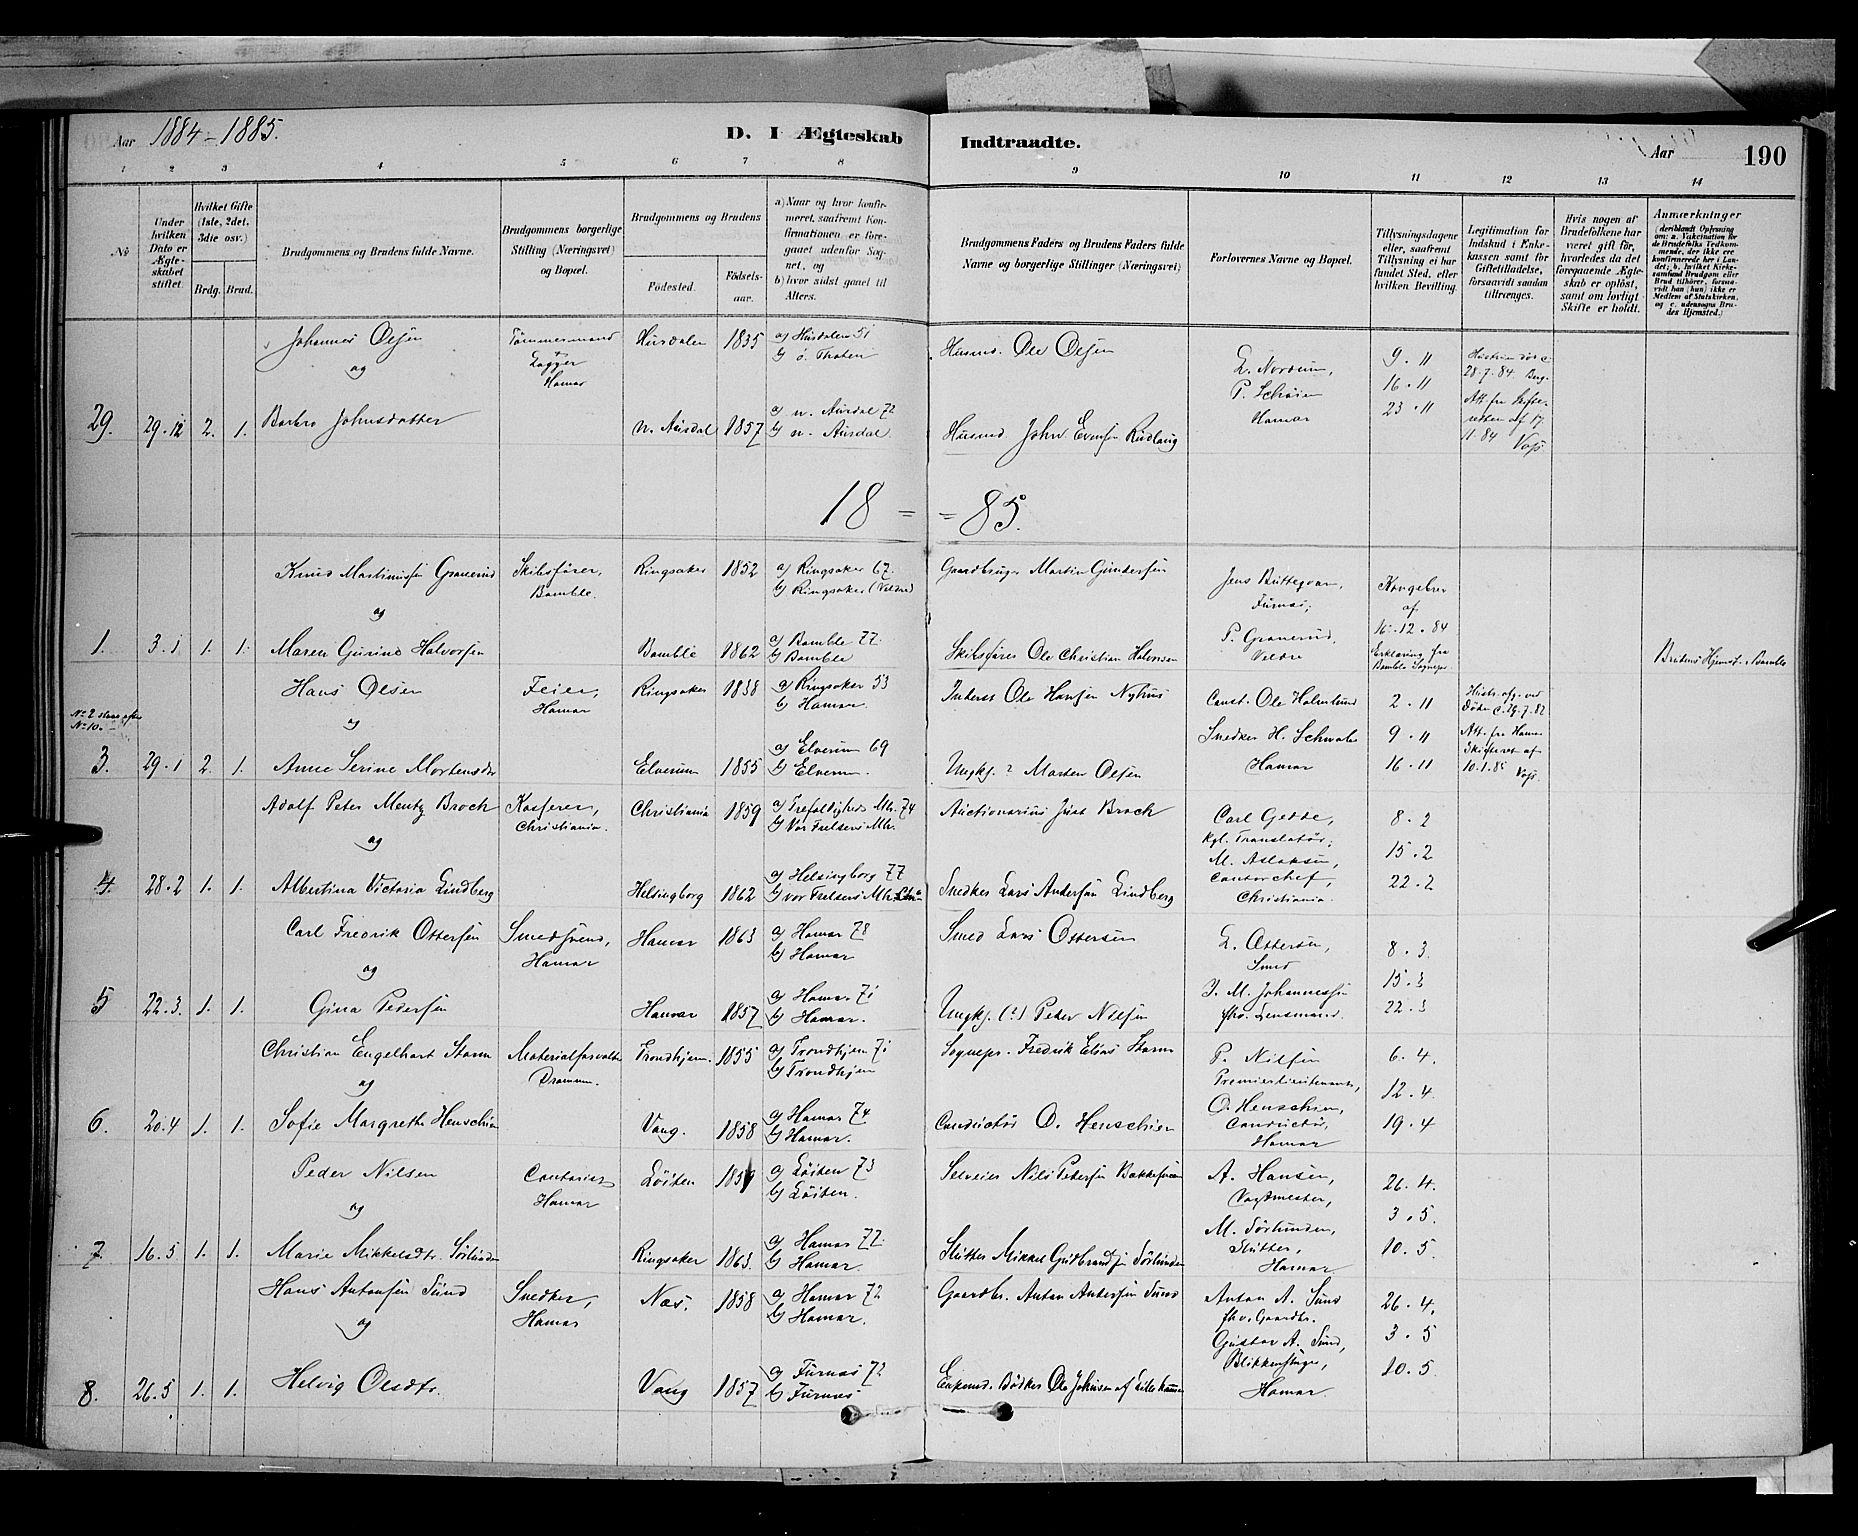 Aar 1884-1885.
D. I Ægteskab Indtraadte.
Aar 190
1 2 3 4 5 6 7 8 9 10 11 12 13 14
No
Under hvilken Dato er Ægteskabet stiftet.
Hvilket Gifte (1ste, 2det, 3die osv.)
Brdg. Brud.
Brudgommens og Brudens fulde Navne.
Brudgommens borgerlige Stilling (Næringsvei) og Bopæl.
Brudgommens og Brudens
Födested. Födselsaar.
a) Naar og hvor konfirmeret, saafremt Konfirmationen er foregaaet udenfor Sognet, og
b) hvor sidst gaaet til Alters.
Brudgommens Faders og Brudens Faders fulde Navne og borgerlige Stillinger (Næringsvei)
Forlovernes Navne og Bopæl.
Tillysningsdagene eller, saafremt Tillysning ei har fundet Sted, efter hvilken Bevilling.
Legitimation for Indskud i Enkekassen samt for Giftetilladelse, forsaavidt saadan tiltrænges.
Hvis nogen af Brudefolkene har været gift før, hvorledes da det foregaaende Ægteskab er oplöst, samt om lovligt Skifte er holdt.
Anmærkninger (deriblandt Oplysning om: a. Vakcination for de Brudefolks Vedkommende, der ikke ere konfirmerede her i Landet; b. hvilket Kirkesamfund Brudgom eller Brud tilhörer, forsaavidt han (hun) ikke er Medlem af Statskirken, og c. udensogns Brudes Hjemsted.)
Johannes Olsen Tømmermand Husdalen 1835 a) Husdalen 51 Husmd. Ole Olsen
og Lægger Hamar b) ö. Thoten
L. Nordrum, P. Schøien Hamar
9.11 16.11 23.11
28.7.84
29. 29.12 2. 1. Barbro Johnsdatter n. Aurdal 1857 a) n. Aurdal 72 b) n. Aurdal. Husmd. John Evensen Rudlang
18 = = 85.
Knud Martinusen Granerud Skibsfører, Bamble. Ringsaker 1852 a) Ringsaker 67. b) Ringsaker (Veldre) Gaardbruger Martin Gundersen
og
Jens Furnæs; P. Granerud, Veldre
Kongebrev af 16.12.84 Erklæring fra Bamble Sognepr.
1. 3.1 1. 1. Maren Gurine Halvorsen Bamble 1862 a) Bamble 77. b) Bamble Skibsfører Ole Christian Halvorsen
Brudens Hjemsted Bamble
Hans Olsen Feier, Hamar Ringsaker 1838 a) Ringsaker 53 b) Hamar. Inderst Ole Hansen Nyhus
No 2 staar efter No 10.
og
Const. Ole Holmlund Snedker H. Schwabe Hamar
2.11 9.11 16.11
Att. fra Hamar Skifteret af 10.1.85
3. 29.1 2. 1. Anne Serine Mortensdr Elverum 1855 a) Elverum 69 b) Elverum. Ungkj. ? Morten Olsen
Adolf Peter Mentz Broch Kasserer, Christiania. Christiania 1859 a) Trefoldigheds Mh. 74 b) Vor Frelsers Mh. Auctionarius Just Broch
og
Carl Gedde, Kgl. Translatør; M. Aslaksen, Contorchef, Christiania.
8.2 15.2 22.2
4. 28.2 1. 1. Albertina Victoria Lindberg Helsingborg 1862 a) Helsingborg 77 b) Vor Frelsers Mh. Chra Snedker Lars Andersen Lindberg
Carl Fredrik Ottersen Smedsvend, Hamar Hamar 1863 a) Hamar 78 b) Hamar Smed Lars Ottersen
og
L. Ottersen, Smed J. M. Johannessen fhv. Lensmand.
8.3. 15.3 22.3
5 22.3. 1. 1. Gina Pedersen Hamar 1857 a) Hamar 71 b) Hamar. Ungkj. (?) Peter Nilsen
Christian Engelhart Storm Materialforvalter Drammen. Trondhjem. 1855 a) Trondhjem 71 b) Trondhjem Sognepr. Fredrik Elias Storm
og
P. Nilsen Premierlieutenant, O. Henschien, Conductør, Hamar
6.4. 12.4. 19.4
6. 20.4 1. 1. Sofie Margrethe Henschien Vang. 1858 a) Hamar 74 b) Hamar. Conductør O. Henschien
Peder Nilsen Contorist Hamar Løiten 1859 a) Løiten 73 b) Løiten. Selveier Nils Pedersen
og
A. Hansen, Vagtmester, M. Sørlunden, Slutter, Hamar
26.4. 3.5. 10.5.
7. 16.5 1. 1. Marie Mikkelsdtr. Sørlunden Ringsaker 1863. a) Hamar 77. b) Hamar. Slutter Mikkel Gudbrandsen Sørlunden
Hans Antonsen Sund Snedker, Hamar Næs. 1858 a) Hamar 72 b) Hamar. Gaardbr. Anton Andersen Sund
og
Anton A. Sund fhv. Gaardbr. Gustav A. Sund, Blikkenslager, Hamar
26.4. 3.5 10.5
8. 26.5 1. 1. Helvig Olsdtr. Vang 1857 a) Furnæs 72 b) Furnæs Bødker Ole Johnsen af Lillehammer